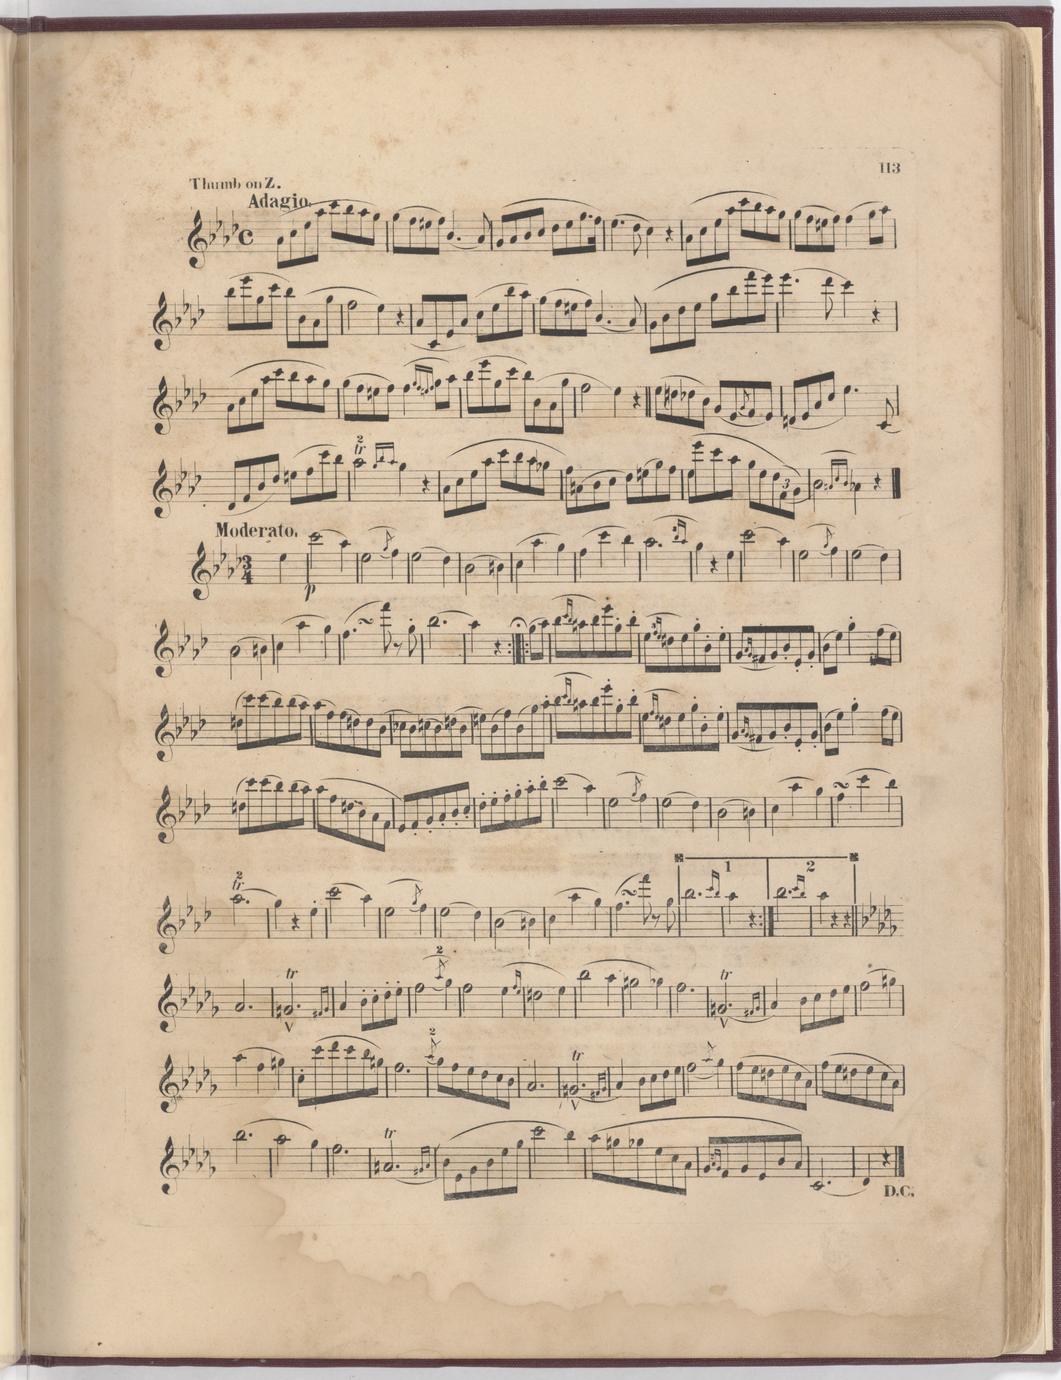 113
Thumb on Z.
Adagio.
2
tr
3
Moderato.
3
4
p
3
2
tr
1
2
tr
2
tr
2
tr
tr
D.C.